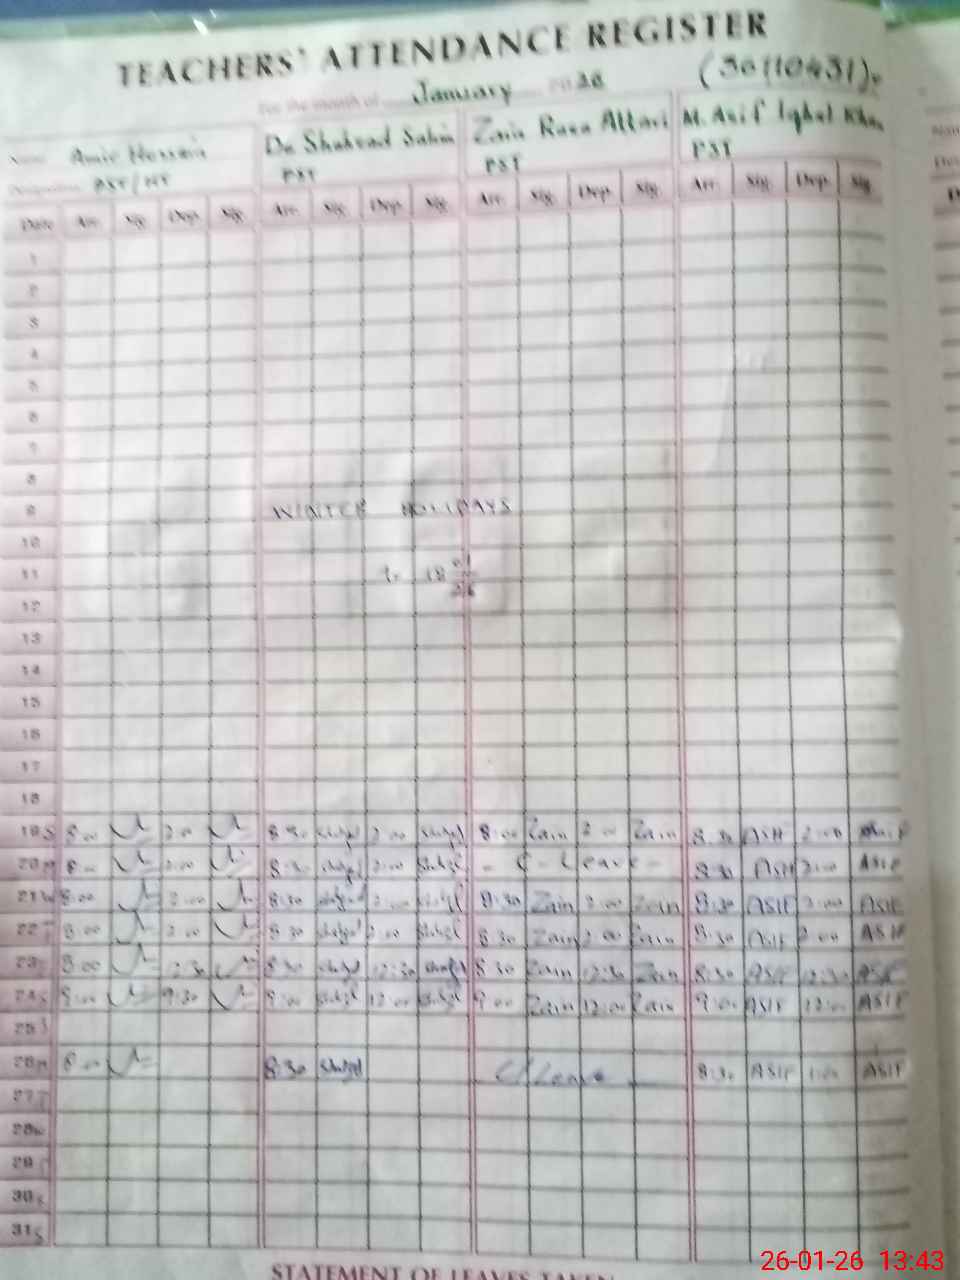 TEACHERS' ATTENDANCE REGISTER
For the month of January 2026 (30110431).
Name Amir Hussain Shahzad Zain Raza Attari M. Asif Iqbal Khan
Designation PST/HT PST PST PST
Date Arr. Sig. Dep. Sig. Arr. Sig. Dep. Sig. Arr. Sig. Dep. Sig. Arr. Sig. Dep. Sig.
1
2
3
4
5
6
7
8
9 WINTER HOLIDAYS
10
11 18 01
12
13
14
15
16
17
18
19 8:00 2:00 8:30 2:00 8:00 Zain 2:00 Zain 8:30 ASIF 2:00 ASIF
20 8:00 2:00 8:30 2:00 - C - Leave - 8:30 ASIF 2:00 ASIF
21 8:00 2:00 8:30 2:00 8:30 Zain 2:00 Zain 8:30 ASIF 2:00 ASIF
22 8:00 2:00 8:30 2:00 8:30 Zain 2:00 Zain 8:30 ASIF 2:00 ASIF
23 8:00 12:30 8:30 12:30 8:30 Zain 12:30 Zain 8:30 ASIF 12:30 ASIF
24 S 9:00 9:30 9:00 12:00 9:00 Zain 12:00 Zain 9:00 ASIF 12:00 ASIF
25
26 8:00 8:30 C/Leave 8:30 ASIF 1:00 ASIF
27
28
29
30
31
STATEMENT OF LEAVES TAKEN
26-01-26 13:43